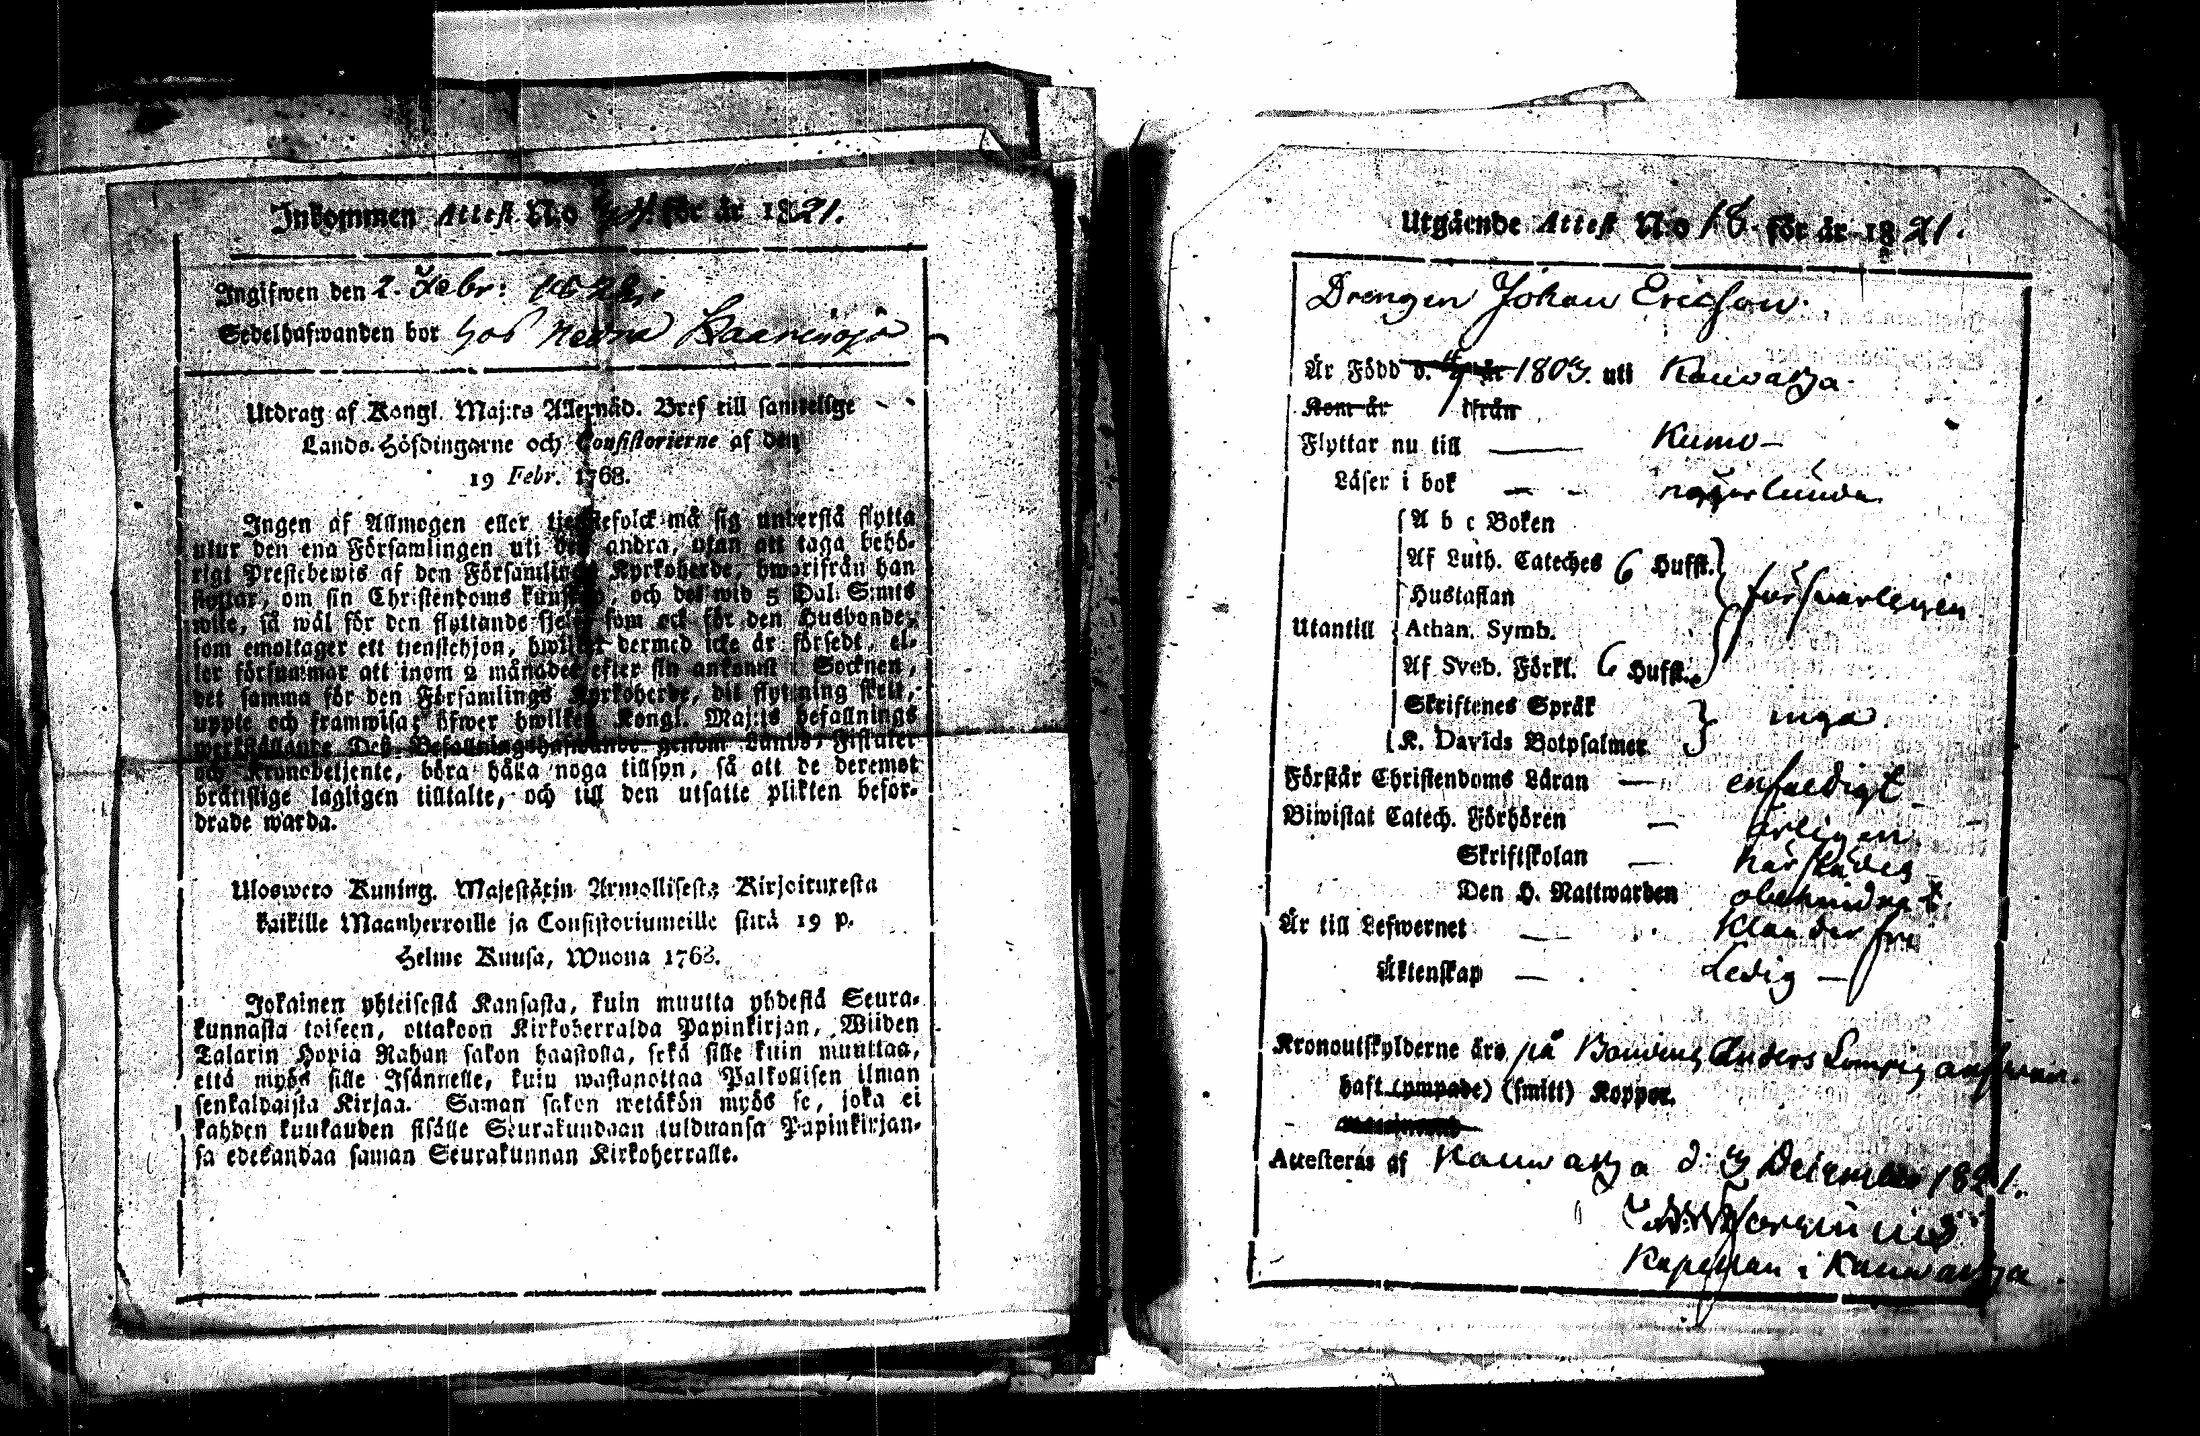 Inkommen Attest N:o för år 1821.
Ingifwen den 2. Febr: 1822.
Sedelhafwanden bor hos Nedra Kaarenoja
Utdrag af Kongl. Maj:ts Allernåd. Bref till samtelige
Lands-Höfdingarne och Consistorierne af den
19 Febr. 1768.
Ingen af Allmogen eller tjenstefolck må sig understå flytta
utur den ena Församlingen uti den andra, utan att taga behö-
rigt Prestebewis af den Församlings Kyrkoherde, hwarifrån han
flyttar, om sin Christendoms kunskap, och det wid 5 Dal. S:mts
wite, så wäl för den flyttande sielf som ock för den Husbonde,
som emottager ett tjenstehjon, hwilket dermed icke är försedt, el-
ler försummar att inom 2 månader efter sin ankomst i Socknen,
det samma för den Församlings Kyrkoherde, dit flyttning skett,
uppte och framwisa; öfwer hwilket Kongl. Maj:ts befallnings
werkställande Des Befallningshafwande genom Lands-Fiskaler
och Kronobetjente, böra hålla noga tillsyn, så att de deremot
bråttslige lagligen tilltalte, och till den utsatte plikten befor-
drade warda.
Ulosweto Kuning. Majestätin Armollisesta Kirjoituxesta
kaikille Maanherroille ja Consistoriumeille siitä 19 p.
Helme Kuusa, Wuona 1768.
Jokainen yhteisestä Kansasta, kuin muutta yhdestä Seura-
kunnasta toiseen, ottakoon Kirkoherralda Papinkirjan, Wiiden
Talarin Hopia Rahan sakon haastolla, sekä sille kuin muuttaa,
että myös sille Isännelle, kuin wastanottaa Palkollisen ilman
senkaldaista Kirjaa. Saman sakon wetäkön myös se, joka ei
kahden kuukauden sisälle Seurakundaan tulduansa Papinkirjan-
sa edeskandaa saman Seurakunnan Kirkoherralle.
Utgående Attest N:o 18. för år 1821.
Drengen Johan Ericsson.
Är Född d. år 1803. uti Kauvatza.
Kom år ifrån
Flyttar nu till Kumo
Läser i bok någorlunda
A b c Boken
Af Luth. Cateches 6 Hufst.
Hustaflan försvarligen
Utantill Athan. Symb.
Af Sveb. Förkl. 6 Hufst.
Skriftenes Språk inga.
K. Davids Botpsalmer
Förstår Christendoms Läran enfaldigt
Biwistat Catech. Förhören årligen
Skriftskolan härstädes
Den H. Nattwarden obehindrat
Är till Lefwernet klanderfri
Äktenskap Ledig
Kronoutskylderne äro på Bonden Anders ansvar.
haft (ympade) (smitt) Koppor.
Attesteras af Kauwatza d. 3 December 1821.
Kapellan i Kauwatza